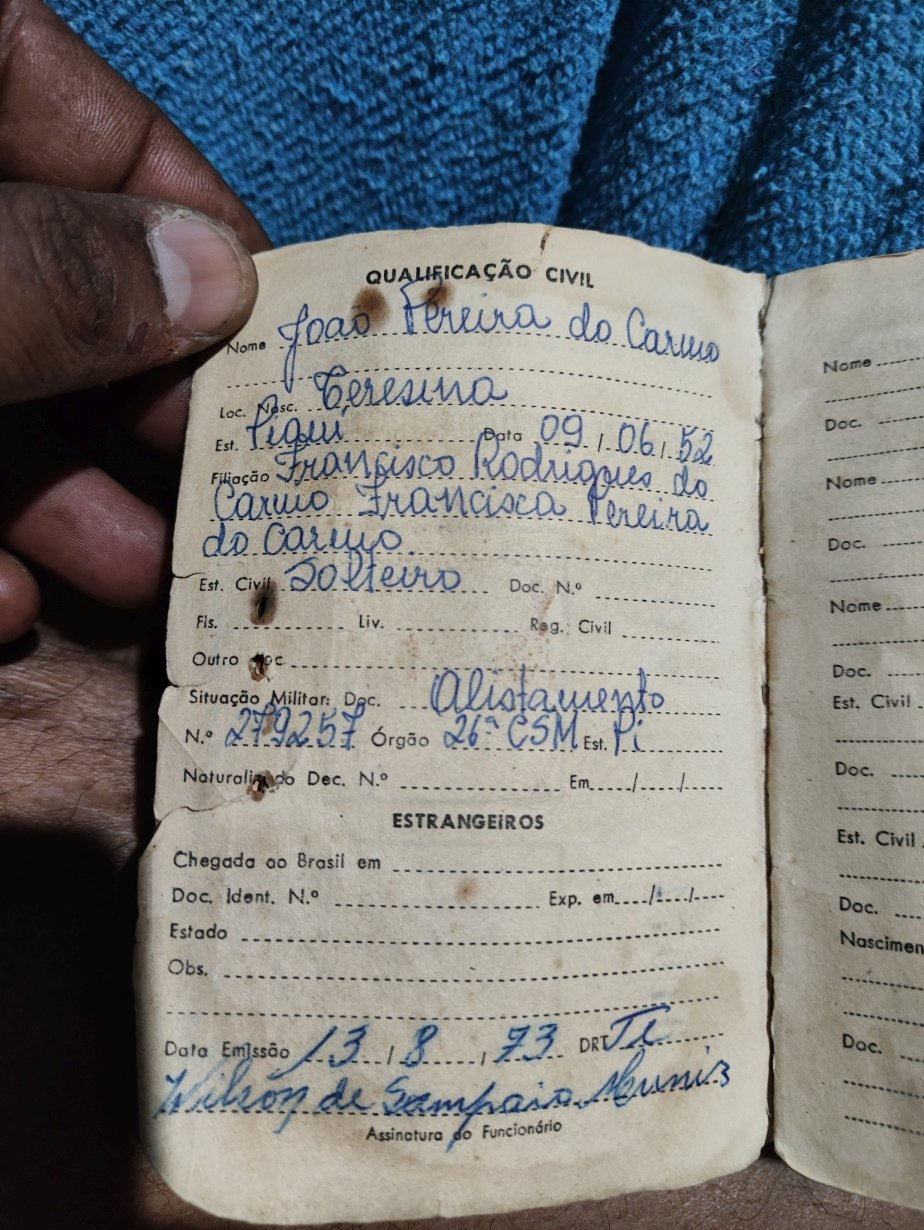 QUALIFICAÇÃO CIVIL
Nome João Pereira do Carmo
Loc. Nasc. Teresina
Est. Piauí Data 09/06/52
Filiação Francisco Rodrigues do
Carmo Francisca Pereira
do Carmo
Est. Civil Solteiro Doc. N.º
Fis. Liv. Reg. Civil
Outro Doc.
Situação Militar: Doc. Alistamento
N.º 279257 Órgão 26ª CSM Est. Pi
Naturalizado Dec. N.º Em / /
ESTRANGEIROS
Chegada ao Brasil em
Doc. Ident. N.º Exp. em / /
Estado
Obs.
Data Emissão 13/8/73 DRT
Wilson de Sampaio Muniz
Assinatura do Funcionário
Nome
Doc.
Nome
Doc.
Nome
Doc.
Est. Civil
Doc.
Est. Civil
Doc.
Nascimen
Doc.